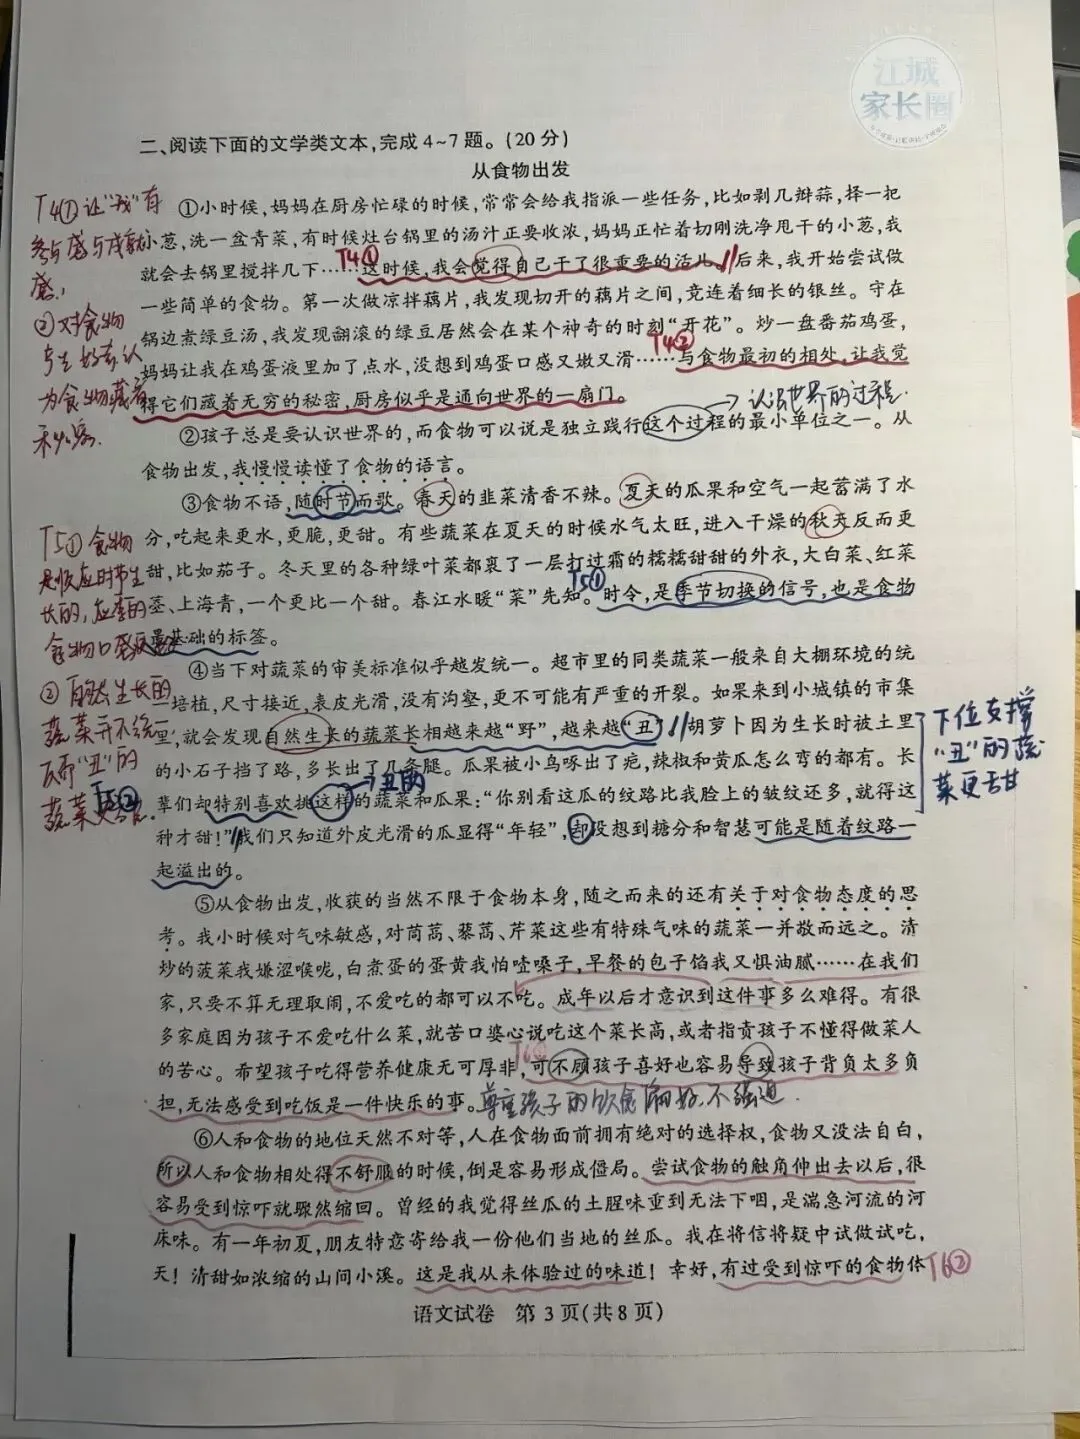 江城
家长圈
二、阅读下面的文学类文本,完成4~7题。(20分)
从食物出发
①小时候,妈妈在厨房忙碌的时候,常常会给我指派一些任务,比如剥几瓣蒜,择一把
小葱,洗一盆青菜,有时候灶台锅里的汤汁正要收浓,妈妈正忙着切刚洗净甩干的小葱,我
就会去锅里搅拌几下……这时候,我会觉得自己干了很重要的活儿。后来,我开始尝试做
一些简单的食物。第一次做凉拌藕片,我发现切开的藕片之间,竞连着细长的银丝。守在
锅边煮绿豆汤,我发现翻滚的绿豆居然会在某个神奇的时刻“开花”。炒一盘番茄鸡蛋,
妈妈让我在鸡蛋液里加了点水,没想到鸡蛋口感又嫩又滑……与食物最初的相处,让我觉
得它们藏着无穷的秘密,厨房似乎是通向世界的一扇门。
②孩子总是要认识世界的,而食物可以说是独立践行这个过程的最小单位之一。从
食物出发,我慢慢读懂了食物的语言。
③食物不语,随时节而歌。春天的韭菜清香不辣。夏天的瓜果和空气一起蓄满了水
分,吃起来更水,更脆,更甜。有些蔬菜在夏天的时候水气太旺,进入干燥的秋天反而更
甜,比如茄子。冬天里的各种绿叶菜都裹了一层打过霜的糯糯甜甜的外衣,大白菜、红菜
薹、上海青,一个更比一个甜。春江水暖“菜”先知。时令,是季节切换的信号,也是食物
最基础的标签。
④当下对蔬菜的审美标准似乎越发统一。超市里的同类蔬菜一般来自大棚环境的统
一培植,尺寸接近,表皮光滑,没有沟壑,更不可能有严重的开裂。如果来到小城镇的市集
里,就会发现自然生长的蔬菜长相越来越“野”,越来越“丑”。胡萝卜因为生长时被土里
的小石子挡了路,多长出了几条腿。瓜果被小鸟啄出了疤,辣椒和黄瓜怎么弯的都有。长
辈们却特别喜欢挑这样的蔬菜和瓜果:“你别看这瓜的纹路比我脸上的皱纹还多,就得这
种才甜!”我们只知道外皮光滑的瓜显得“年轻”,却没想到糖分和智慧可能是随着纹路一
起溢出的。
⑤从食物出发,收获的当然不限于食物本身,随之而来的还有关于对食物态度的思
考。我小时候对气味敏感,对茼蒿、藜蒿、芹菜这些有特殊气味的蔬菜一并敬而远之。清
炒的菠菜我嫌涩喉咙,白煮蛋的蛋黄我怕噎嗓子,早餐的包子馅我又惧油腻……在我们
家,只要不算无理取闹,不爱吃的都可以不吃。成年以后才意识到这件事多么难得。有很
多家庭因为孩子不爱吃什么菜,就苦口婆心说吃这个菜长高,或者指责孩子不懂得做菜人
的苦心。希望孩子吃得营养健康无可厚非,可不顾孩子喜好也容易导致孩子背负太多负
担,无法感受到吃饭是一件快乐的事。
⑥人和食物的地位天然不对等,人在食物面前拥有绝对的选择权,食物又没法自白,
所以人和食物相处得不舒服的时候,倒是容易形成僵局。尝试食物的触角伸出去以后,很
容易受到惊吓就骤然缩回。曾经的我觉得丝瓜的土腥味重到无法下咽,是湍急河流的河
床味。有一年初夏,朋友特意寄给我一份他们当地的丝瓜。我在将信将疑中试做试吃,
天!清甜如浓缩的山间小溪。这是我从未体验过的味道!幸好,有过受到惊吓的食物体
语文试卷 第3页(共8页)
T4① 让“我”有
参与感与成就
感。
②对食物
产生好奇认
为食物藏着
秘密.
T4①
T4②
认识世界的过程.
T5① 食物
是顺应时节生
长的,应季的
食物口感更
T5①
② 自然生长的
蔬菜并不统一
反而“丑”的
蔬菜
T5②
丑的
下位支撑
“丑”的蔬
菜更舌甘
T6①
尊重孩子的饮食偏好.不强迫.
T6②